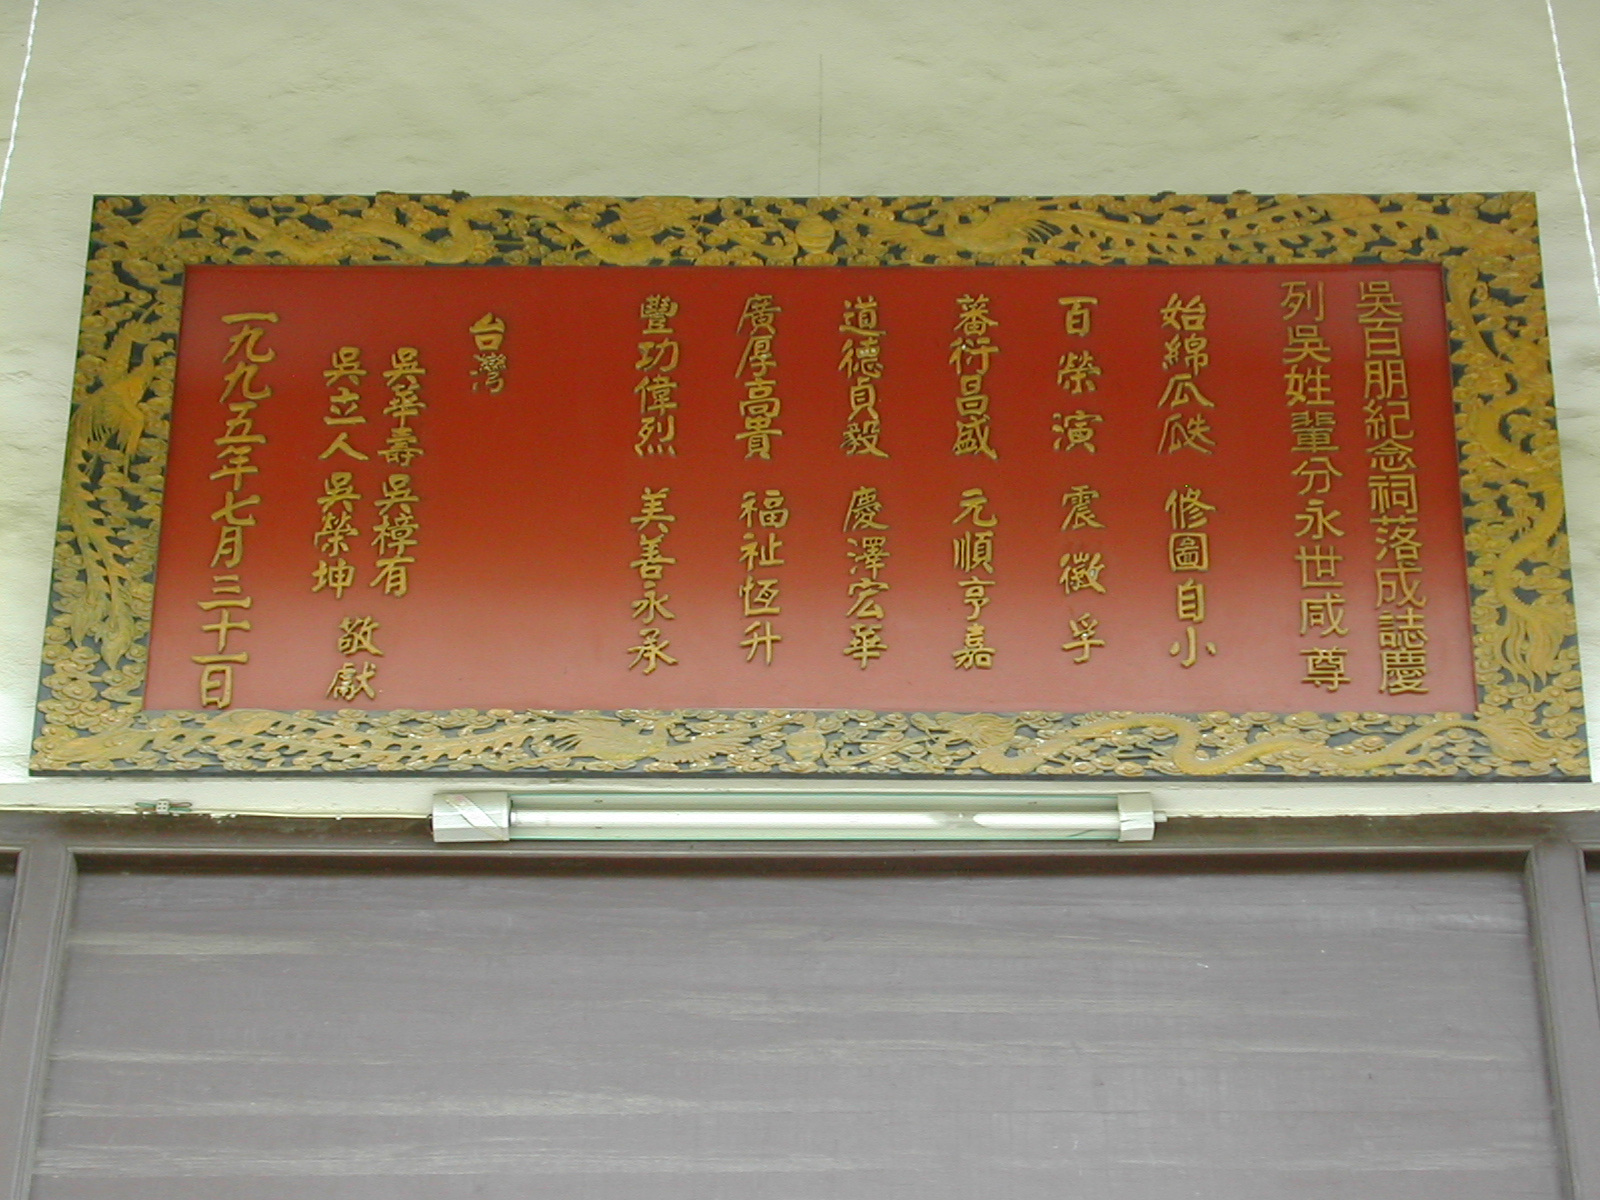 吳百朋紀念祠落成誌慶
列吳姓輩分永世咸尊
始綿瓜瓞 修圖自小
百榮演 震徽孚
蕃衍昌盛 元順亨嘉
道德貞毅 慶澤宏華
廣厚高貴 福祉恆升
豐功偉烈 美善永承
台灣
吳華壽 吳樟有
吳立人 吳榮坤 敬獻
一九九五年七月三十一日